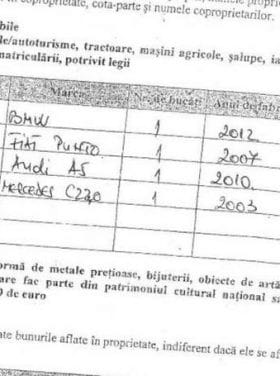 coproprietate, cota-parte și numele coproprietarilor.
bile
le/autoturisme, tractoare, mașini agricole, șalupe, ia
matriculării, potrivit legii
Marca Nr. de bucăți Anul de fa
BMW 1 2012
FIAT PUNTO 1 2007
Audi A5 1 2010
MERCEDES C220 1 2003
ormă de metale prețioase, bijuterii, obiecte de artă
are fac parte din patrimoniul cultural național sa
0 de euro
ate bunurile aflate în proprietate, indiferent dacă ele se af